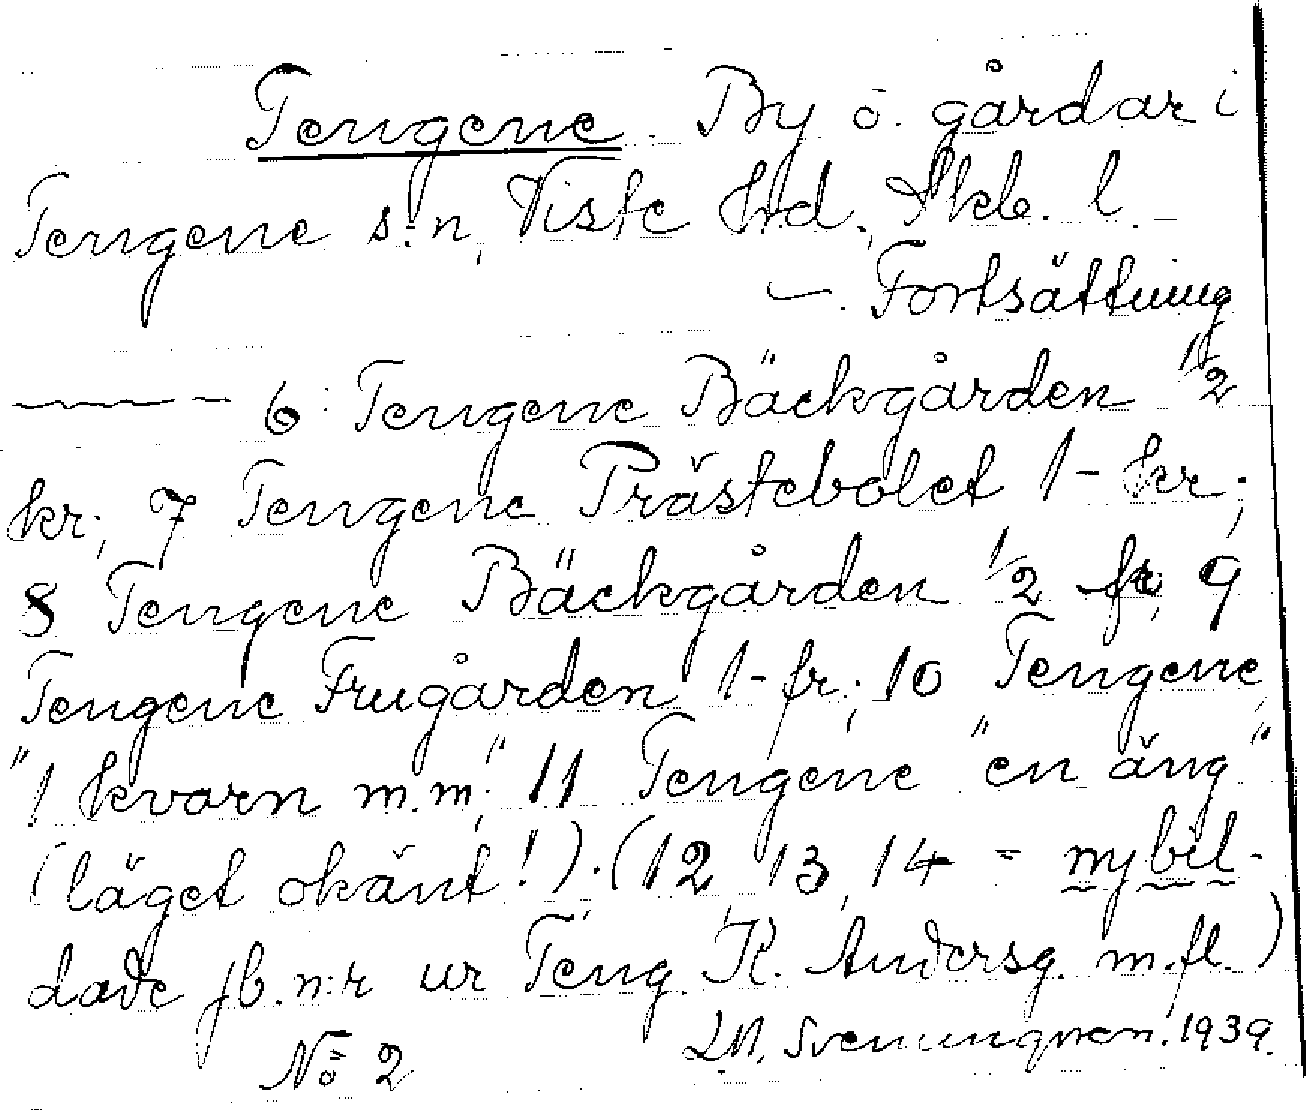 Tengene. By o. gårdar i
Tengene s:n, Viste hrd., Skb. l. –
–. Fortsättning
——— 6 Tengene Bäckgården 1/2
kr; 7 Tengene Prästebolet 1– kr;
8 Tengene Bäckgården 1/2 fr; 9
Tengene Frugården 1– fr; 10 Tengene
"1 kvarn m.m", 11 Tengene "en äng"
(läget okänt!). (12, 13, 14 = nybil-
dade jb. n:r ur Teng. K. Andersg. m.fl.)
No 2 Svenungsson. 1939.